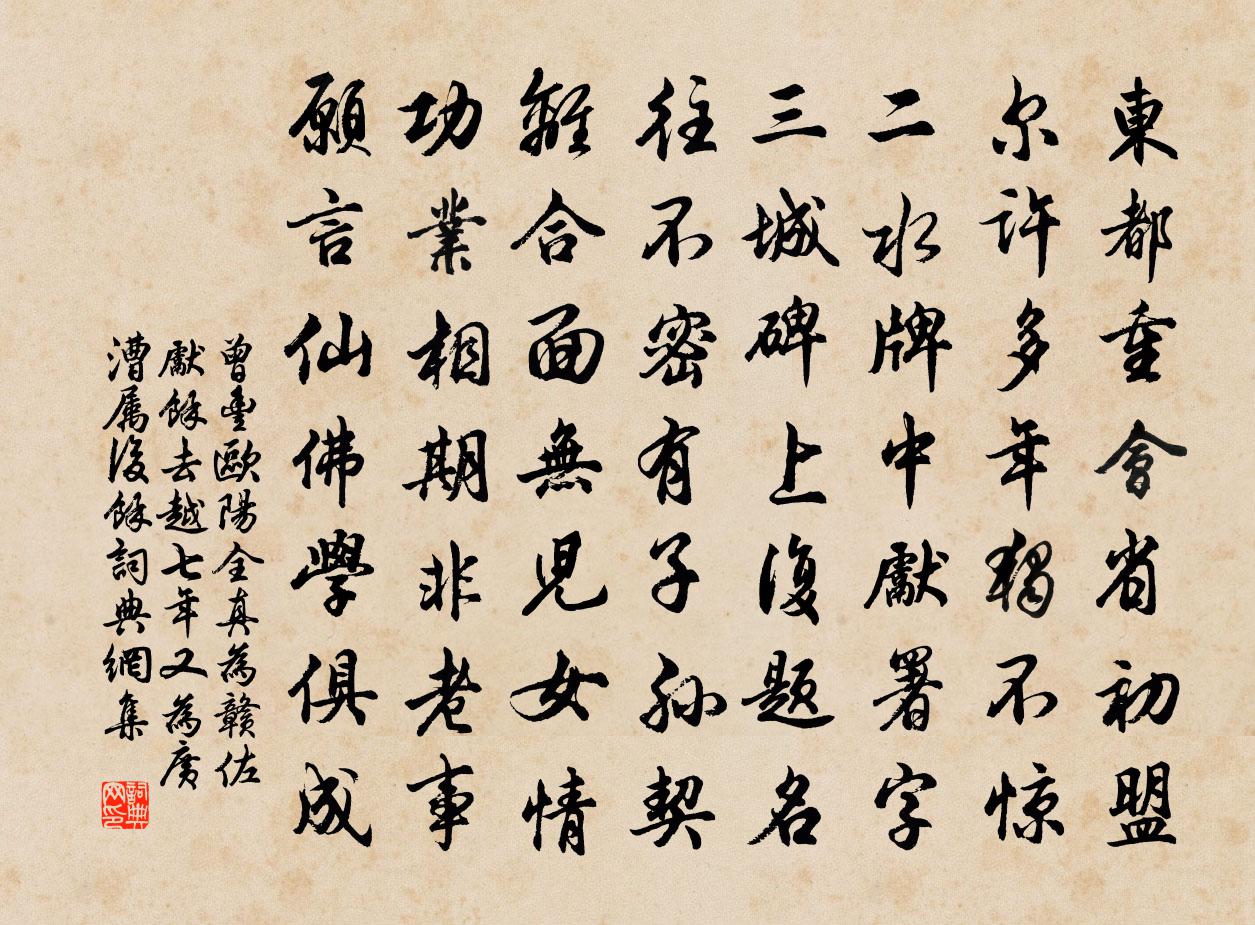 東都重會省初盟
尔許多年獨不惊
二水牌中獻署字
三城碑上復題名
往不密有子孫契
離合面無児女情
功業相期非老事
願言仙佛學俱成
曾豐歐陽全真為贛佐
獻餘去越七年又為廣
漕属復餘詞典網集
詞典网印